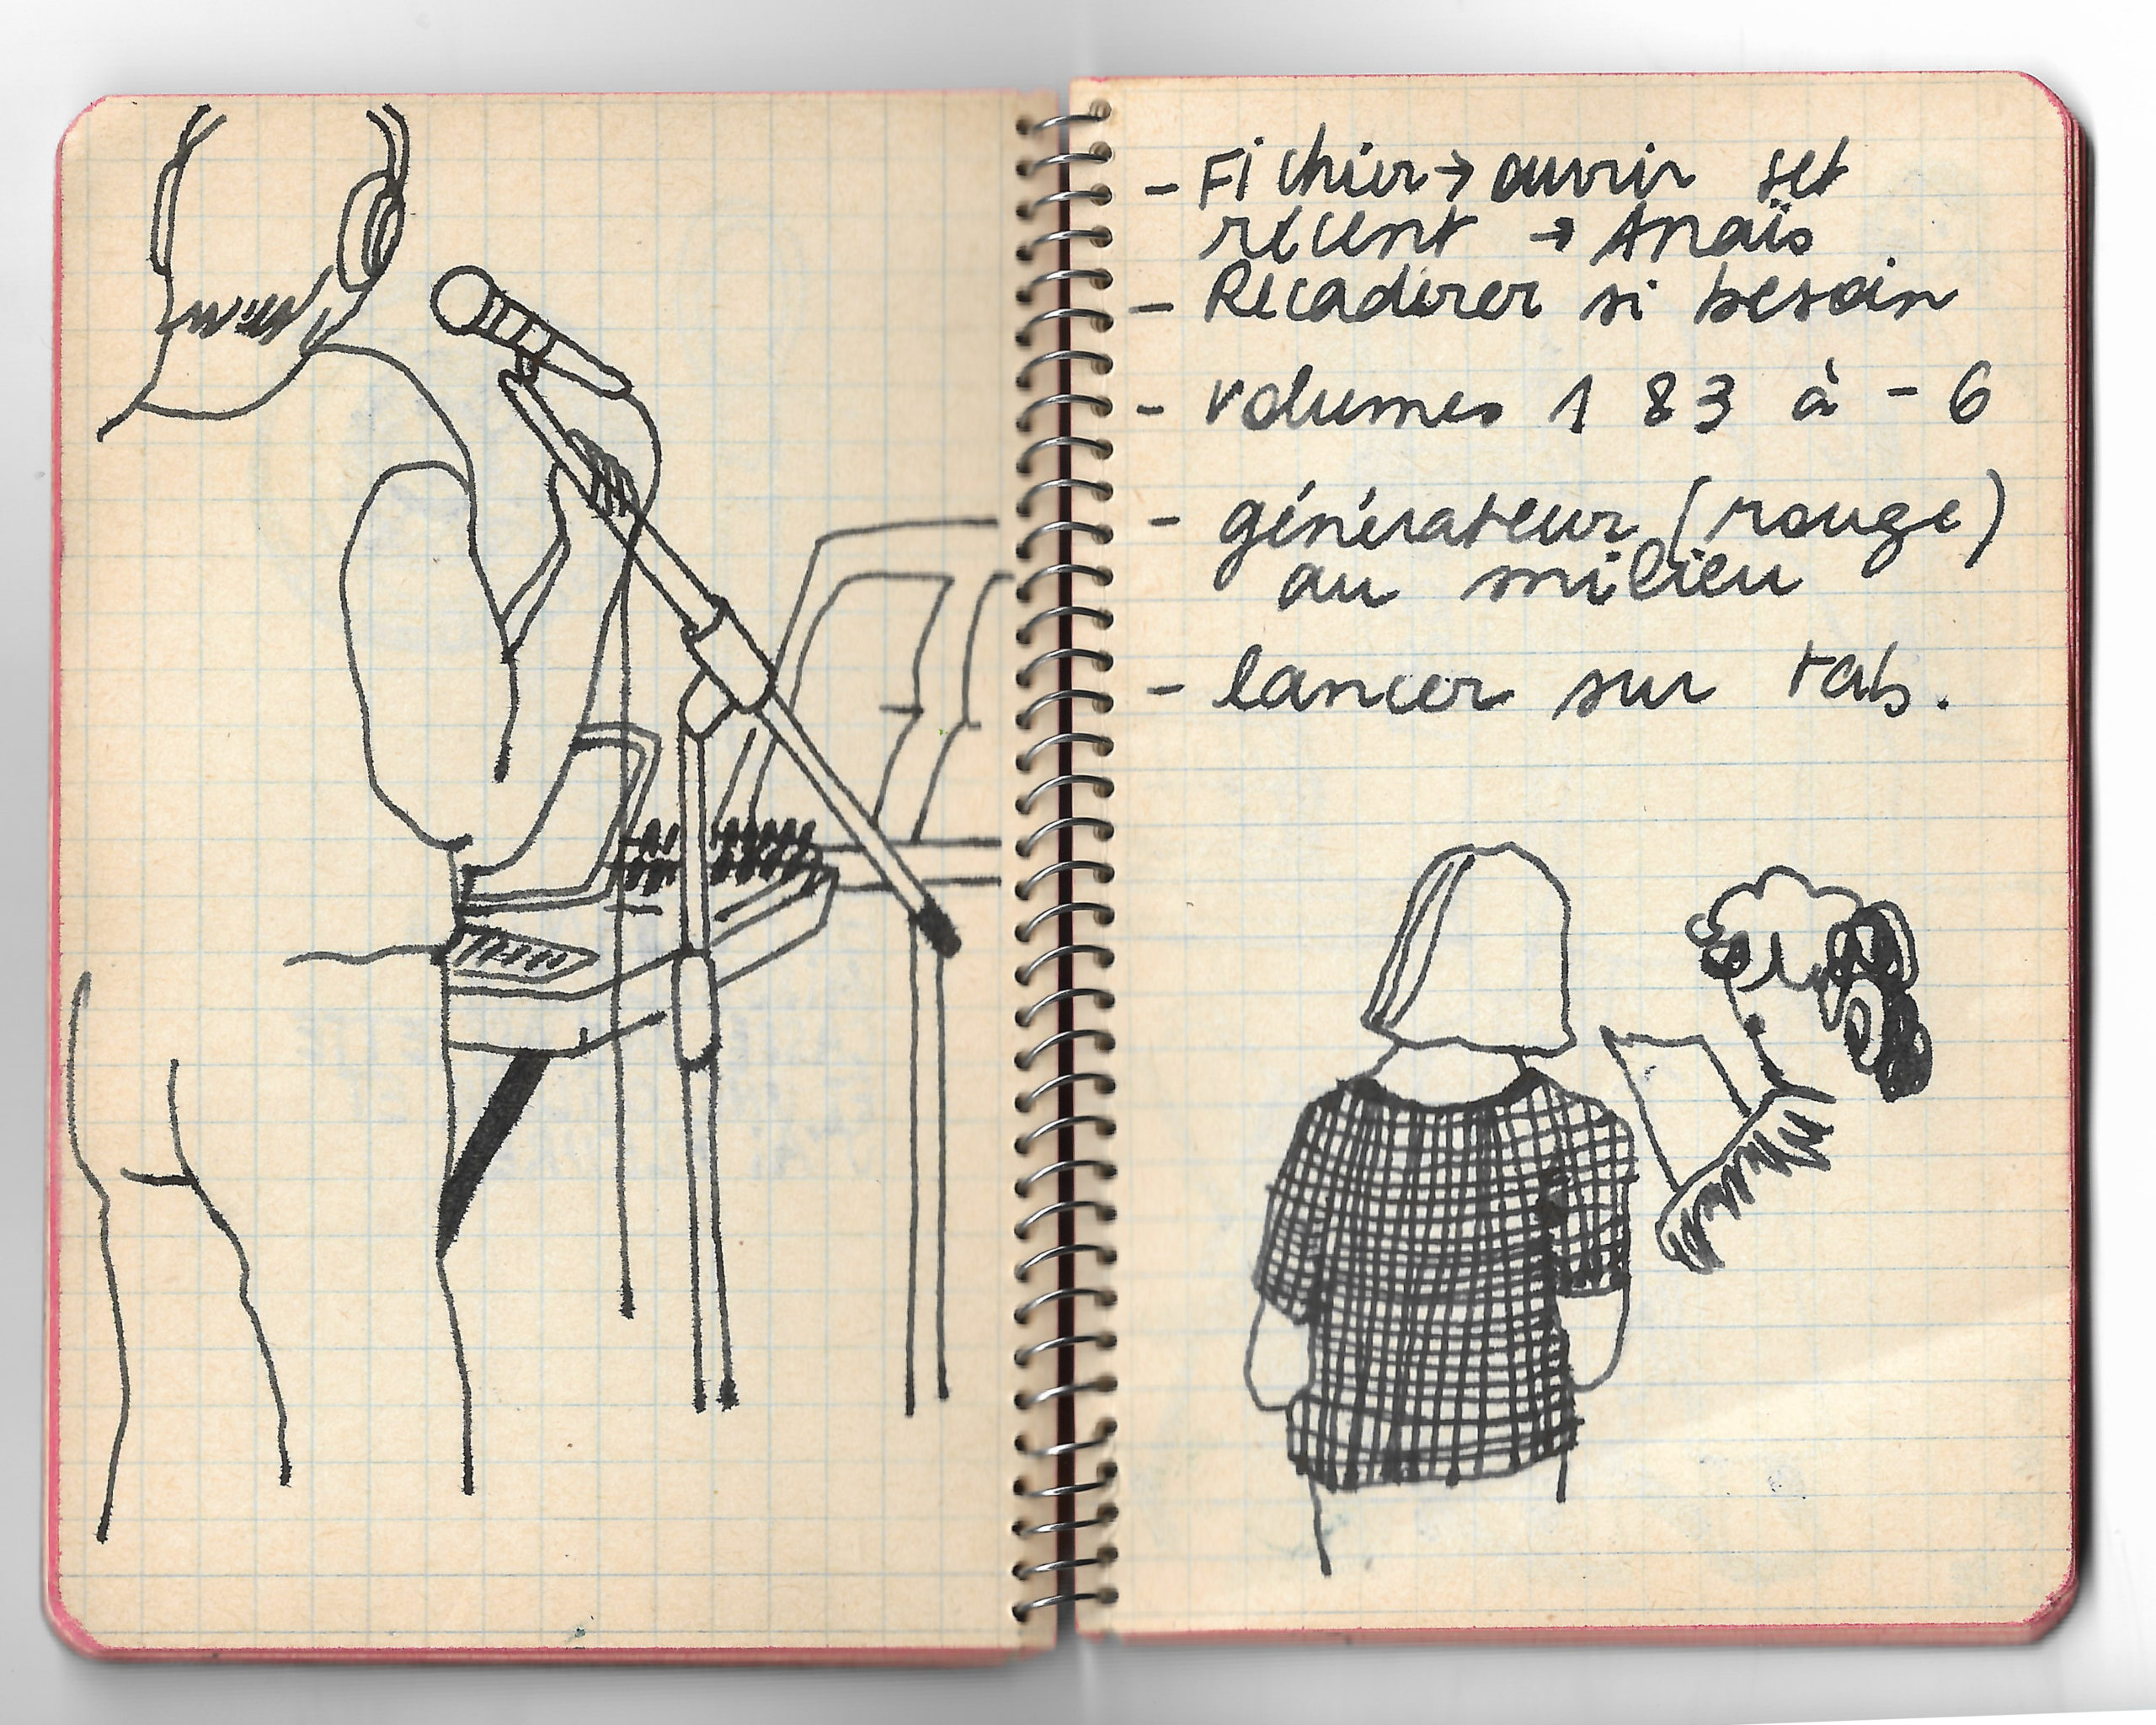 - Fichier → ouvrir set
récent → Anaïs
- Recadrer si besoin
- volumes 1 & 3 à - 6
- générateur (rouge)
au milieu
- lancer sur tab.